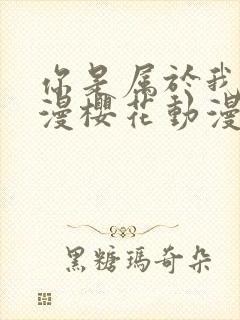 你是属於我
漫樱花動漫
黑糖瑪奇朵